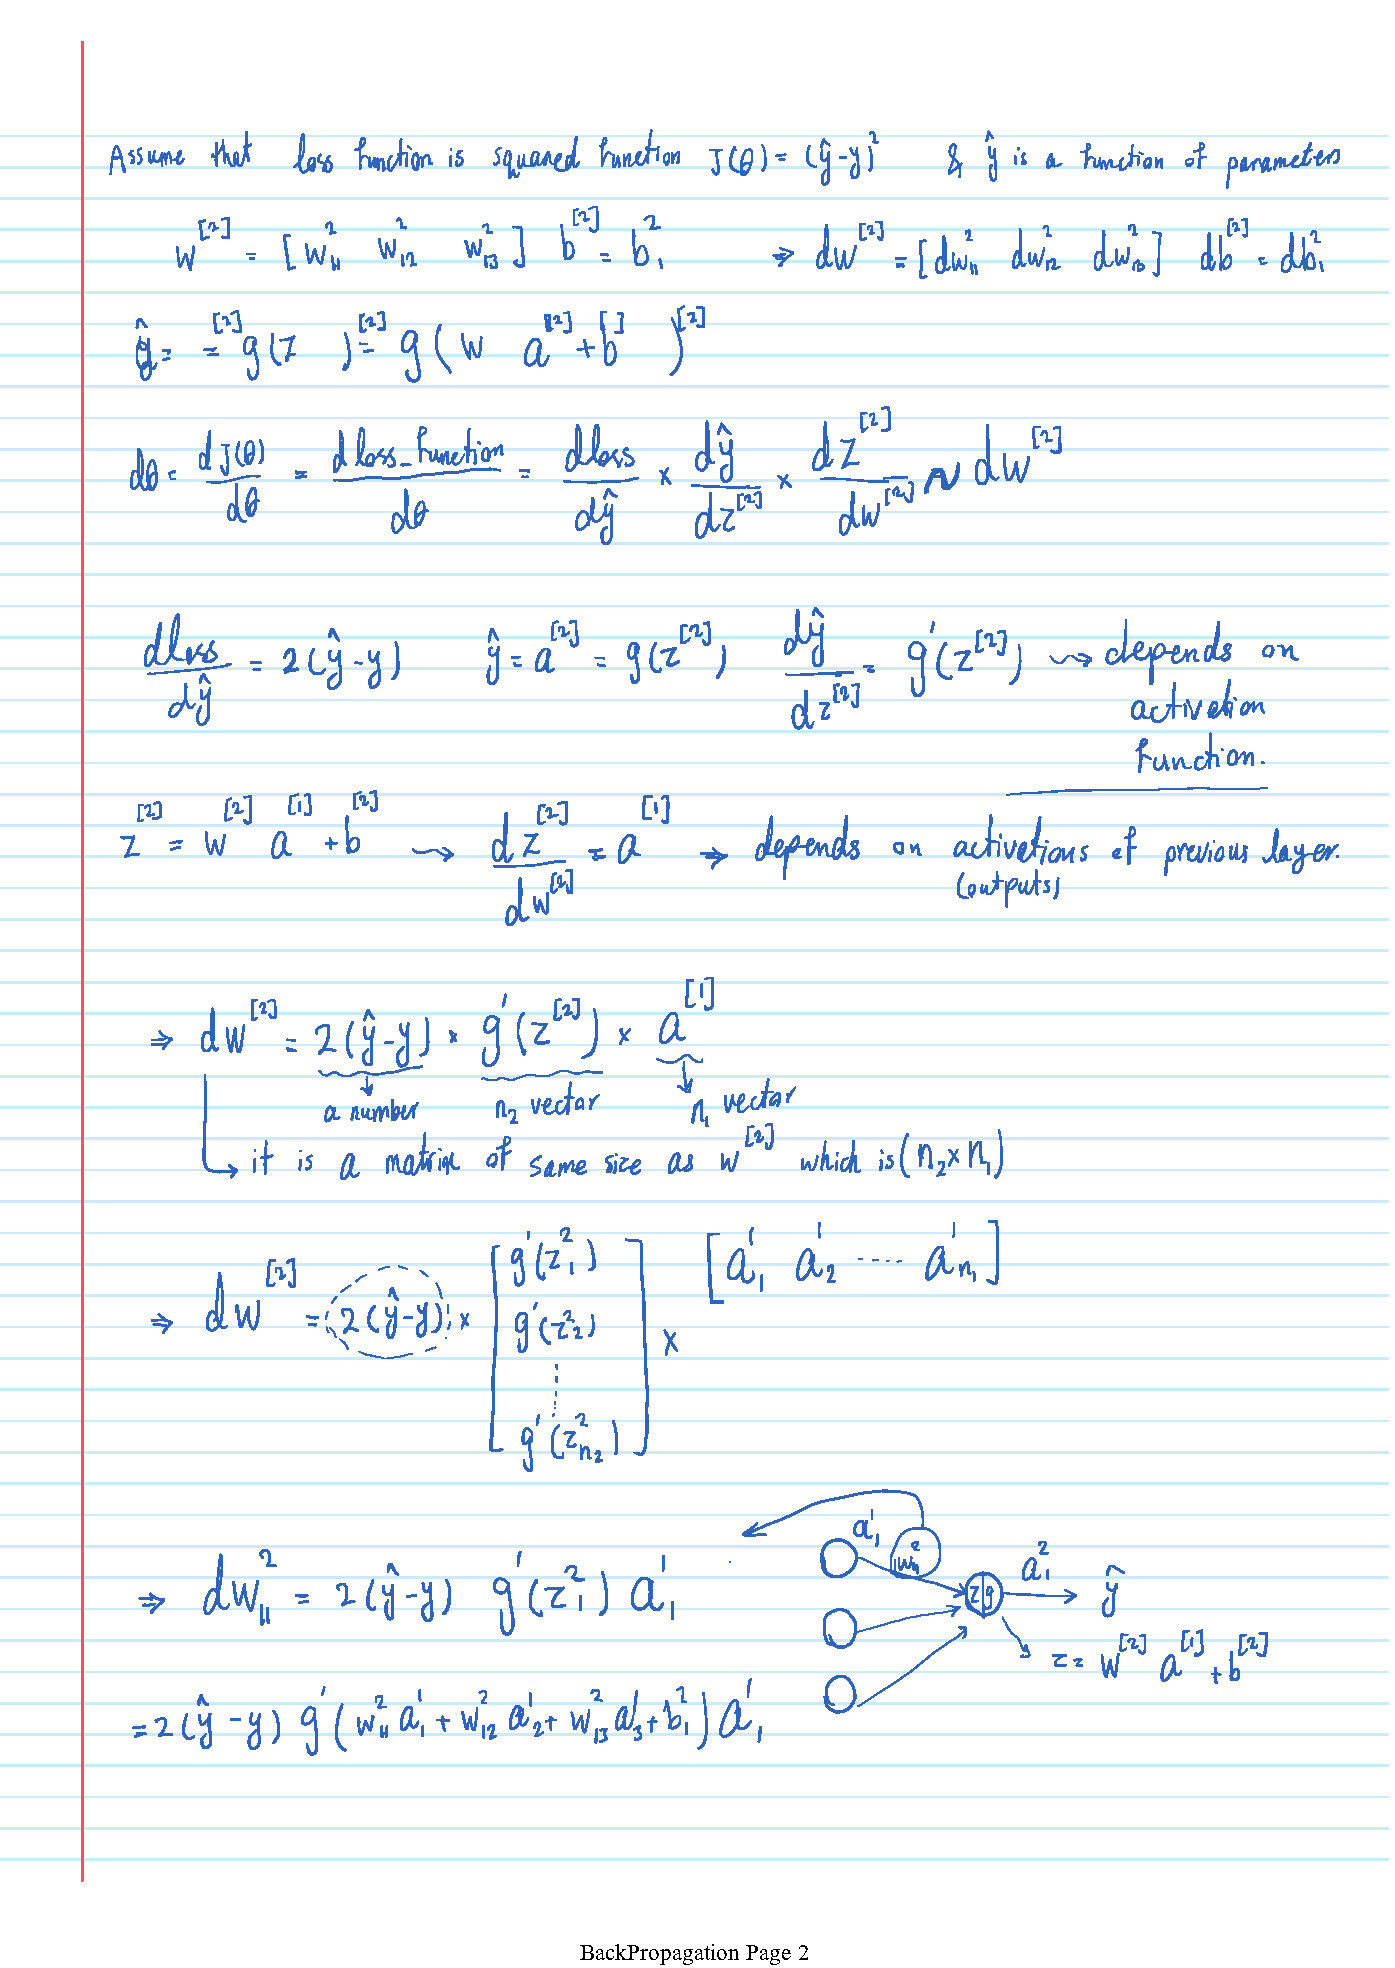 Assume that loss function is squared function J(θ) = (ŷ-y)² & ŷ is a function of parameters
w^[2] = [w²₁₁ w²₁₂ w²₁₃] b^[2] = b²₁ ⇒ dw^[2] = [dw²₁₁ dw²₁₂ dw²₁₃] db^[2] = db²₁
ŷ = = ^[2] g(z )= ^[2] g( w a^[2] + b^[ ] )^[2]
dθ = dJ(θ)/dθ = dloss_function/dθ = dloss/dŷ × dŷ/dz^[2] × dz^[2]/dw^[2] ~ dw^[2]
dloss/dŷ = 2(ŷ-y) ŷ = a^[2] = g(z^[2]) dŷ/dz^[2] = g'(z^[2]) ⇝ depends on
activation
function.
z^[2] = w^[2] a^[1] + b^[2] ⇝ dz^[2]/dw^[2] = a^[1] ⇒ depends on activations of previous layer.
(outputs)
⇒ dw^[2] = 2(ŷ-y) × g'(z^[2]) × a^[1]
a number n₂ vector n₁ vector
it is a matrix of same size as w^[2] which is (n₂×n₁)
⇒ dw^[2] = 2(ŷ-y) × [g'(z²₁) g'(z²₂) ⋮ g'(z²ₙ₂)] × [a¹₁ a¹₂ ---- a¹ₙ₁]
a¹₁ w²₁₁ z|g a²₁ ŷ
⇒ dw²₁₁ = 2(ŷ-y) g'(z²₁) a¹₁
z = w^[2] a^[1] + b^[2]
= 2(ŷ-y) g'(w²₁₁ a¹₁ + w²₁₂ a¹₂ + w²₁₃ a¹₃ + b²₁) a¹₁
BackPropagation Page 2